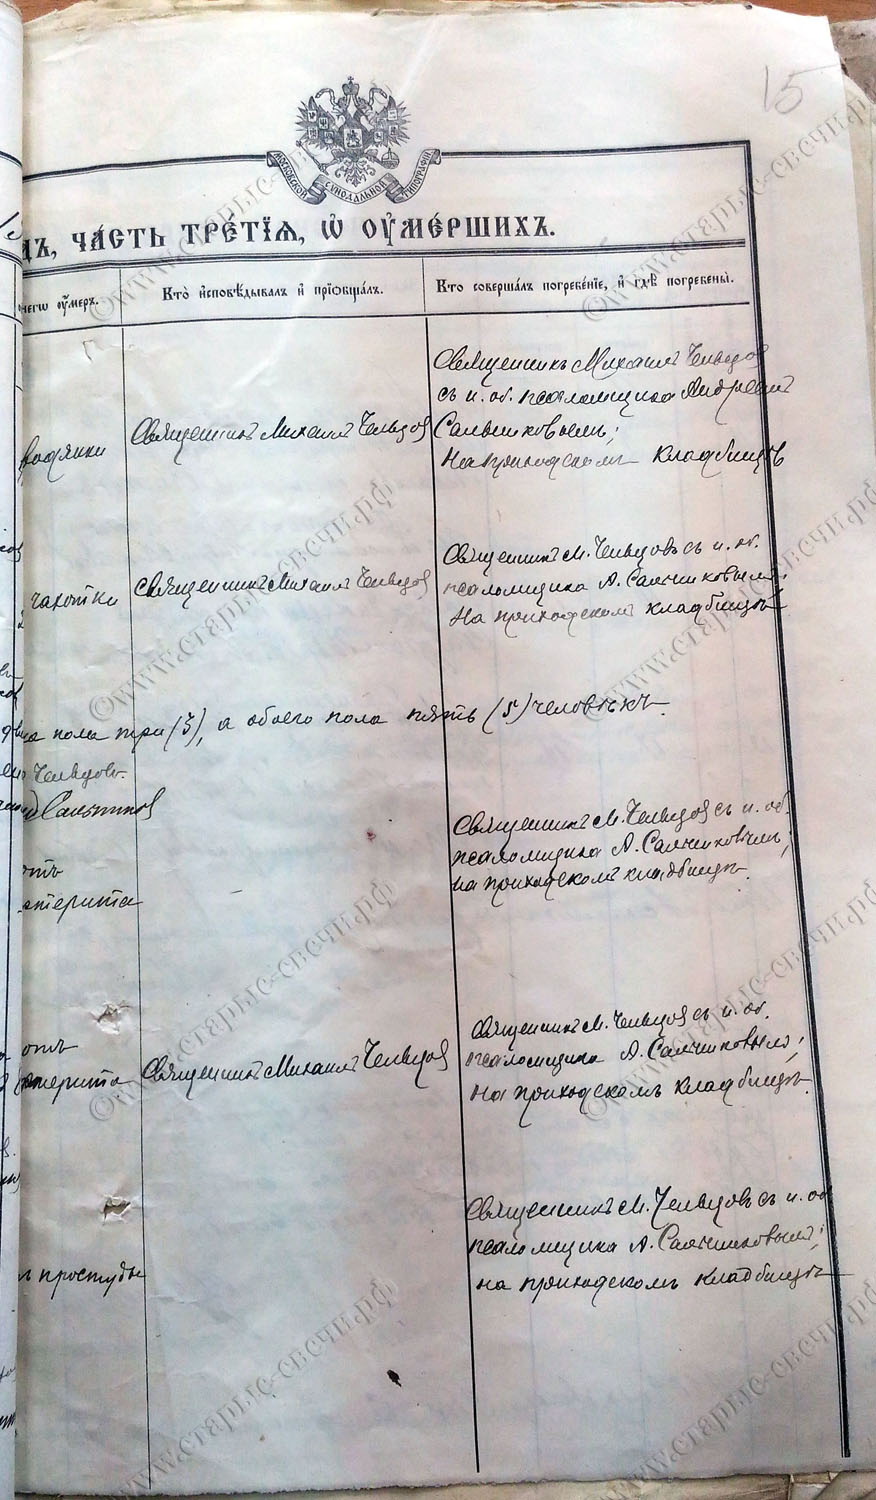 15
МОСКОВСКОЙ СѴНОДАЛЬНОЙ ТИПОГРАФІИ
ДЪ, ЧА́СТЬ ТРЕ́ТЇѦ, Ѡ҆ ОУ҆МЕ́РШИХЪ.
чегѡ оу҆́меръ.
Кто̀ и҆сповѣ́дывалъ и҆ прїѡбща́лъ.
Кто соверша́лъ погребе́нїе, и҆ гдѣ̀ погребены̀.
водянки
Священникъ Михаилъ Чельцов
Священникъ Михаилъ Чельцов
съ и. об. псаломщика Андреемъ
Сальниковымъ;
На приходскомъ кладбищѣ
чахотки
Священникъ Михаилъ Чельцов
Священникъ М. Чельцовъ съ и. об.
псаломщика А. Сальниковымъ;
На приходскомъ кладбищѣ
пола три (3), а обоего пола пять (5) человѣкъ.
Чельцовъ.
Сальников
отъ
Священникъ М. Чельцов съ и. об.
псаломщика А. Сальниковымъ;
на приходскомъ кладбищѣ.
отъ
Священникъ Михаилъ Чельцов
Священникъ М. Чельцов съ и. об.
псаломщика А. Сальниковымъ;
на приходскомъ кладбищѣ.
простуды
Священникъ М. Чельцовъ съ и. об
псаломщика А. Сальниковымъ;
на приходскомъ кладбищѣ
©www.старые-свечи.рф